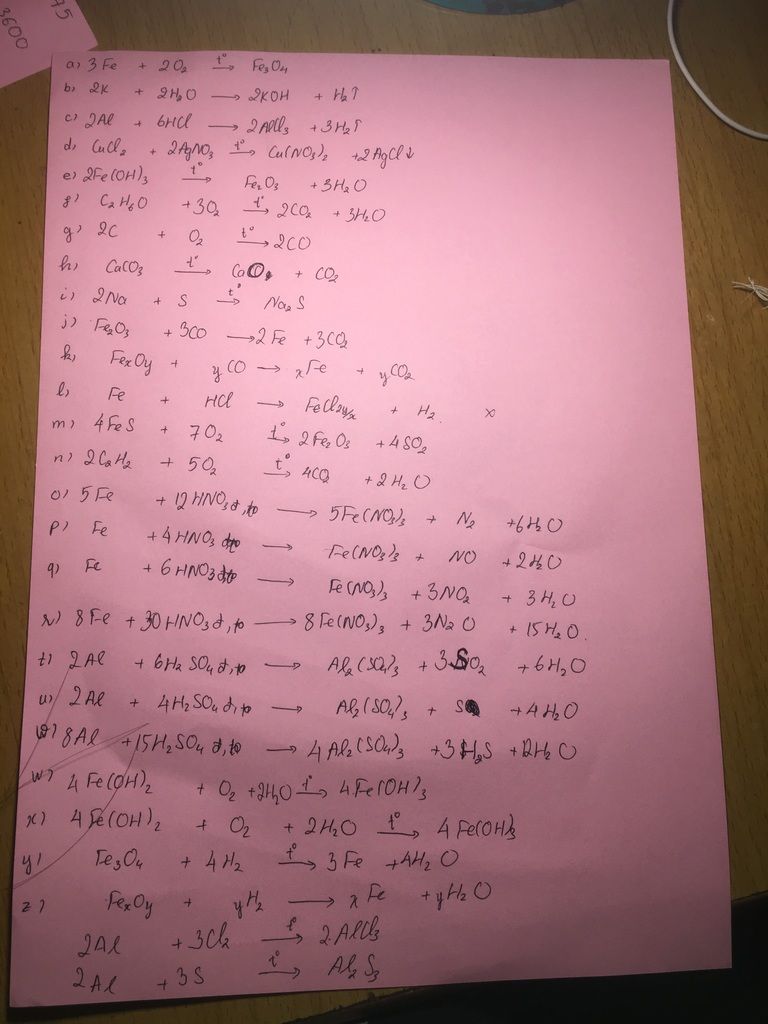 75
3600
a) 3Fe + 2O₂ →t° Fe₃O₄
b) 2K + 2H₂O → 2KOH + H₂↑
c) 2Al + 6HCl → 2AlCl₃ + 3H₂↑
d) CuCl₂ + 2AgNO₃ →t° Cu(NO₃)₂ + 2AgCl↓
e) 2Fe(OH)₃ →t° Fe₂O₃ + 3H₂O
f) C₂H₆O + 3O₂ →t° 2CO₂ + 3H₂O
g) 2C + O₂ →t° 2CO
h) CaCO₃ →t° CaO + CO₂
i) 2Na + S →t° Na₂S
j) Fe₂O₃ + 3CO → 2Fe + 3CO₂
k) FexOy + yCO → xFe + yCO₂
l) Fe + HCl → FeCl2y/x + H₂. x
m) 4FeS + 7O₂ →t° 2Fe₂O₃ + 4SO₂
n) 2C₂H₂ + 5O₂ →t° 4CO₂ + 2H₂O
o) 5Fe + 12HNO₃ đ,to → 5Fe(NO₃)₃ + N₂ + 6H₂O
p) Fe + 4HNO₃ → Fe(NO₃)₃ + NO + 2H₂O
q) Fe + 6HNO₃ → Fe(NO₃)₃ + 3NO₂ + 3H₂O
r) 8Fe + 30HNO₃ đ,to → 8Fe(NO₃)₃ + 3N₂O + 15H₂O.
t) 2Al + 6H₂SO₄ đ,to → Al₂(SO₄)₃ + 3SO₂ + 6H₂O
u) 2Al + 4H₂SO₄ đ,to → Al₂(SO₄)₃ + S + 4H₂O
v) 8Al + 15H₂SO₄ đ,to → 4Al₂(SO₄)₃ + 3H₂S + 12H₂O
w) 4Fe(OH)₂ + O₂ + 2H₂O →t° 4Fe(OH)₃
x) 4Fe(OH)₂ + O₂ + 2H₂O →t° 4Fe(OH)₃
y) Fe₃O₄ + 4H₂ →t° 3Fe + 4H₂O
z) FexOy + yH₂ → xFe + yH₂O
2Al + 3Cl₂ →t° 2AlCl₃
2Al + 3S →t° Al₂S₃